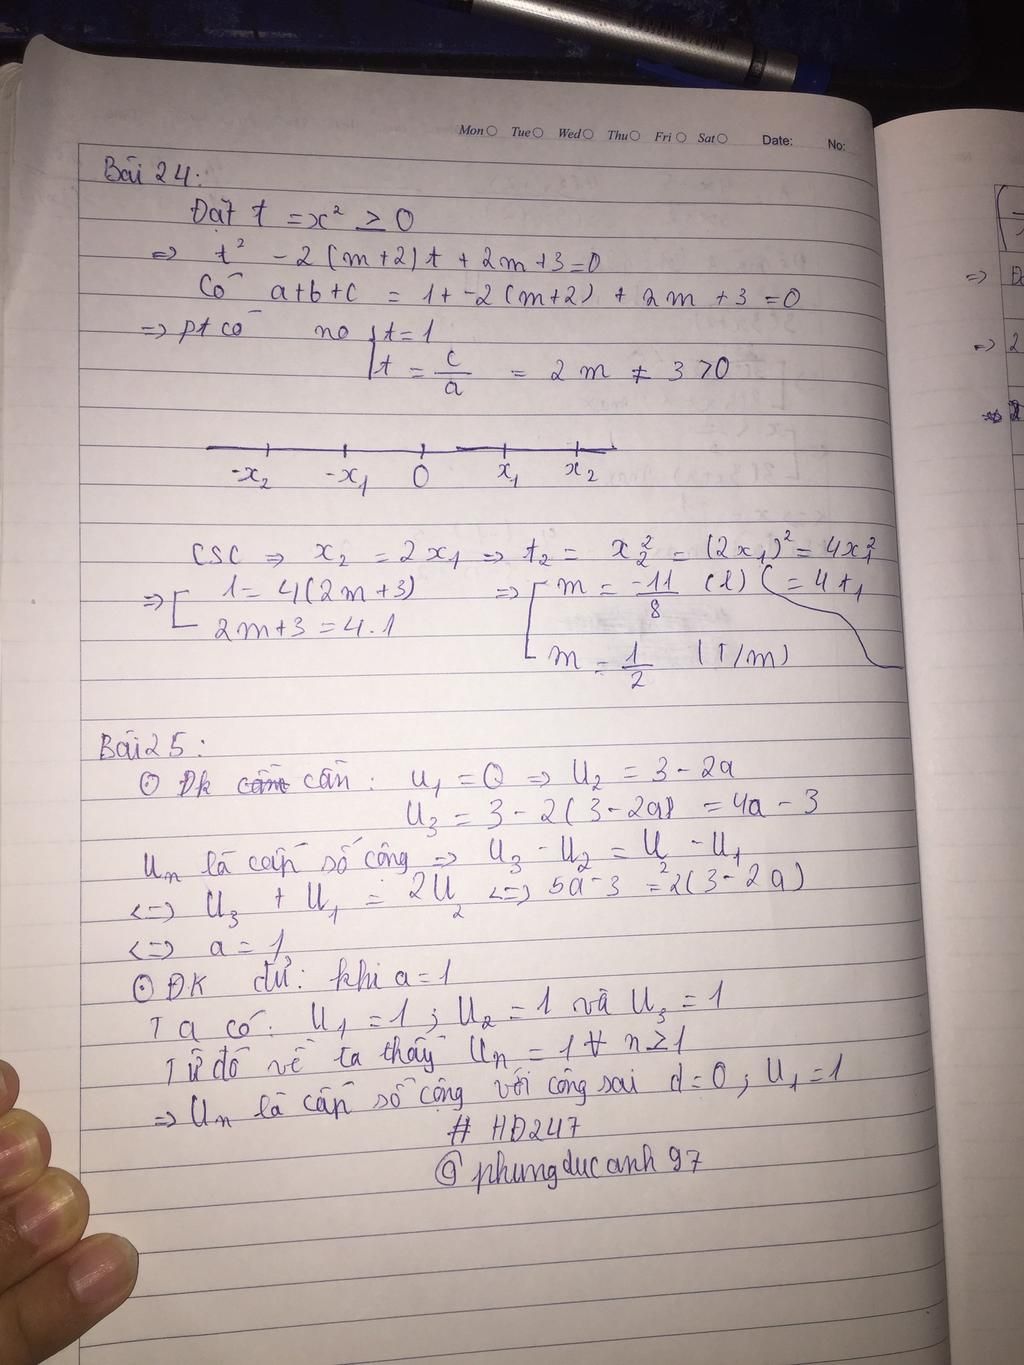 Mon Tue Wed Thu Fri Sat Date: No:
Bài 24:
Đặt t = x² ≥ 0
=> t² - 2(m+2)t + 2m+3=0
Có a+b+c = 1+-2(m+2) + 2m +3 =0
=> pt có no t=1
t = c/a = 2m ≠ 3 >0
-x₂ -x₁ 0 x₁ x₂
CSC => x₂ = 2x₁ => t₂ = x₂² = (2x₁)² = 4x₁²
=> 1= 4(2m+3) => m = -11/8 (l) (= 4t₁
2m+3 = 4.1
m = 1/2 (T/m)
Bài 25:
⊙ Đk cần: u₁ = a => u₂ = 3-2a
u₃ = 3-2(3-2a) = 4a-3
Un là cấp số cộng => u₃ - u₂ = u₂ - u₁
<=> u₃ + u₁ = 2u₂ <=> 5a-3 = 2(3-2a)
<=> a=1
⊙ ĐK đủ: khi a=1
Ta có: u₁ =1; u₂ =1 và u₃ =1
Từ đó về ta thấy Un = 1 ∀ n≥1
=> Un là cấp số cộng với công sai d=0; u₁=1
# HD247
@ phungducanh97
=>
=> 2